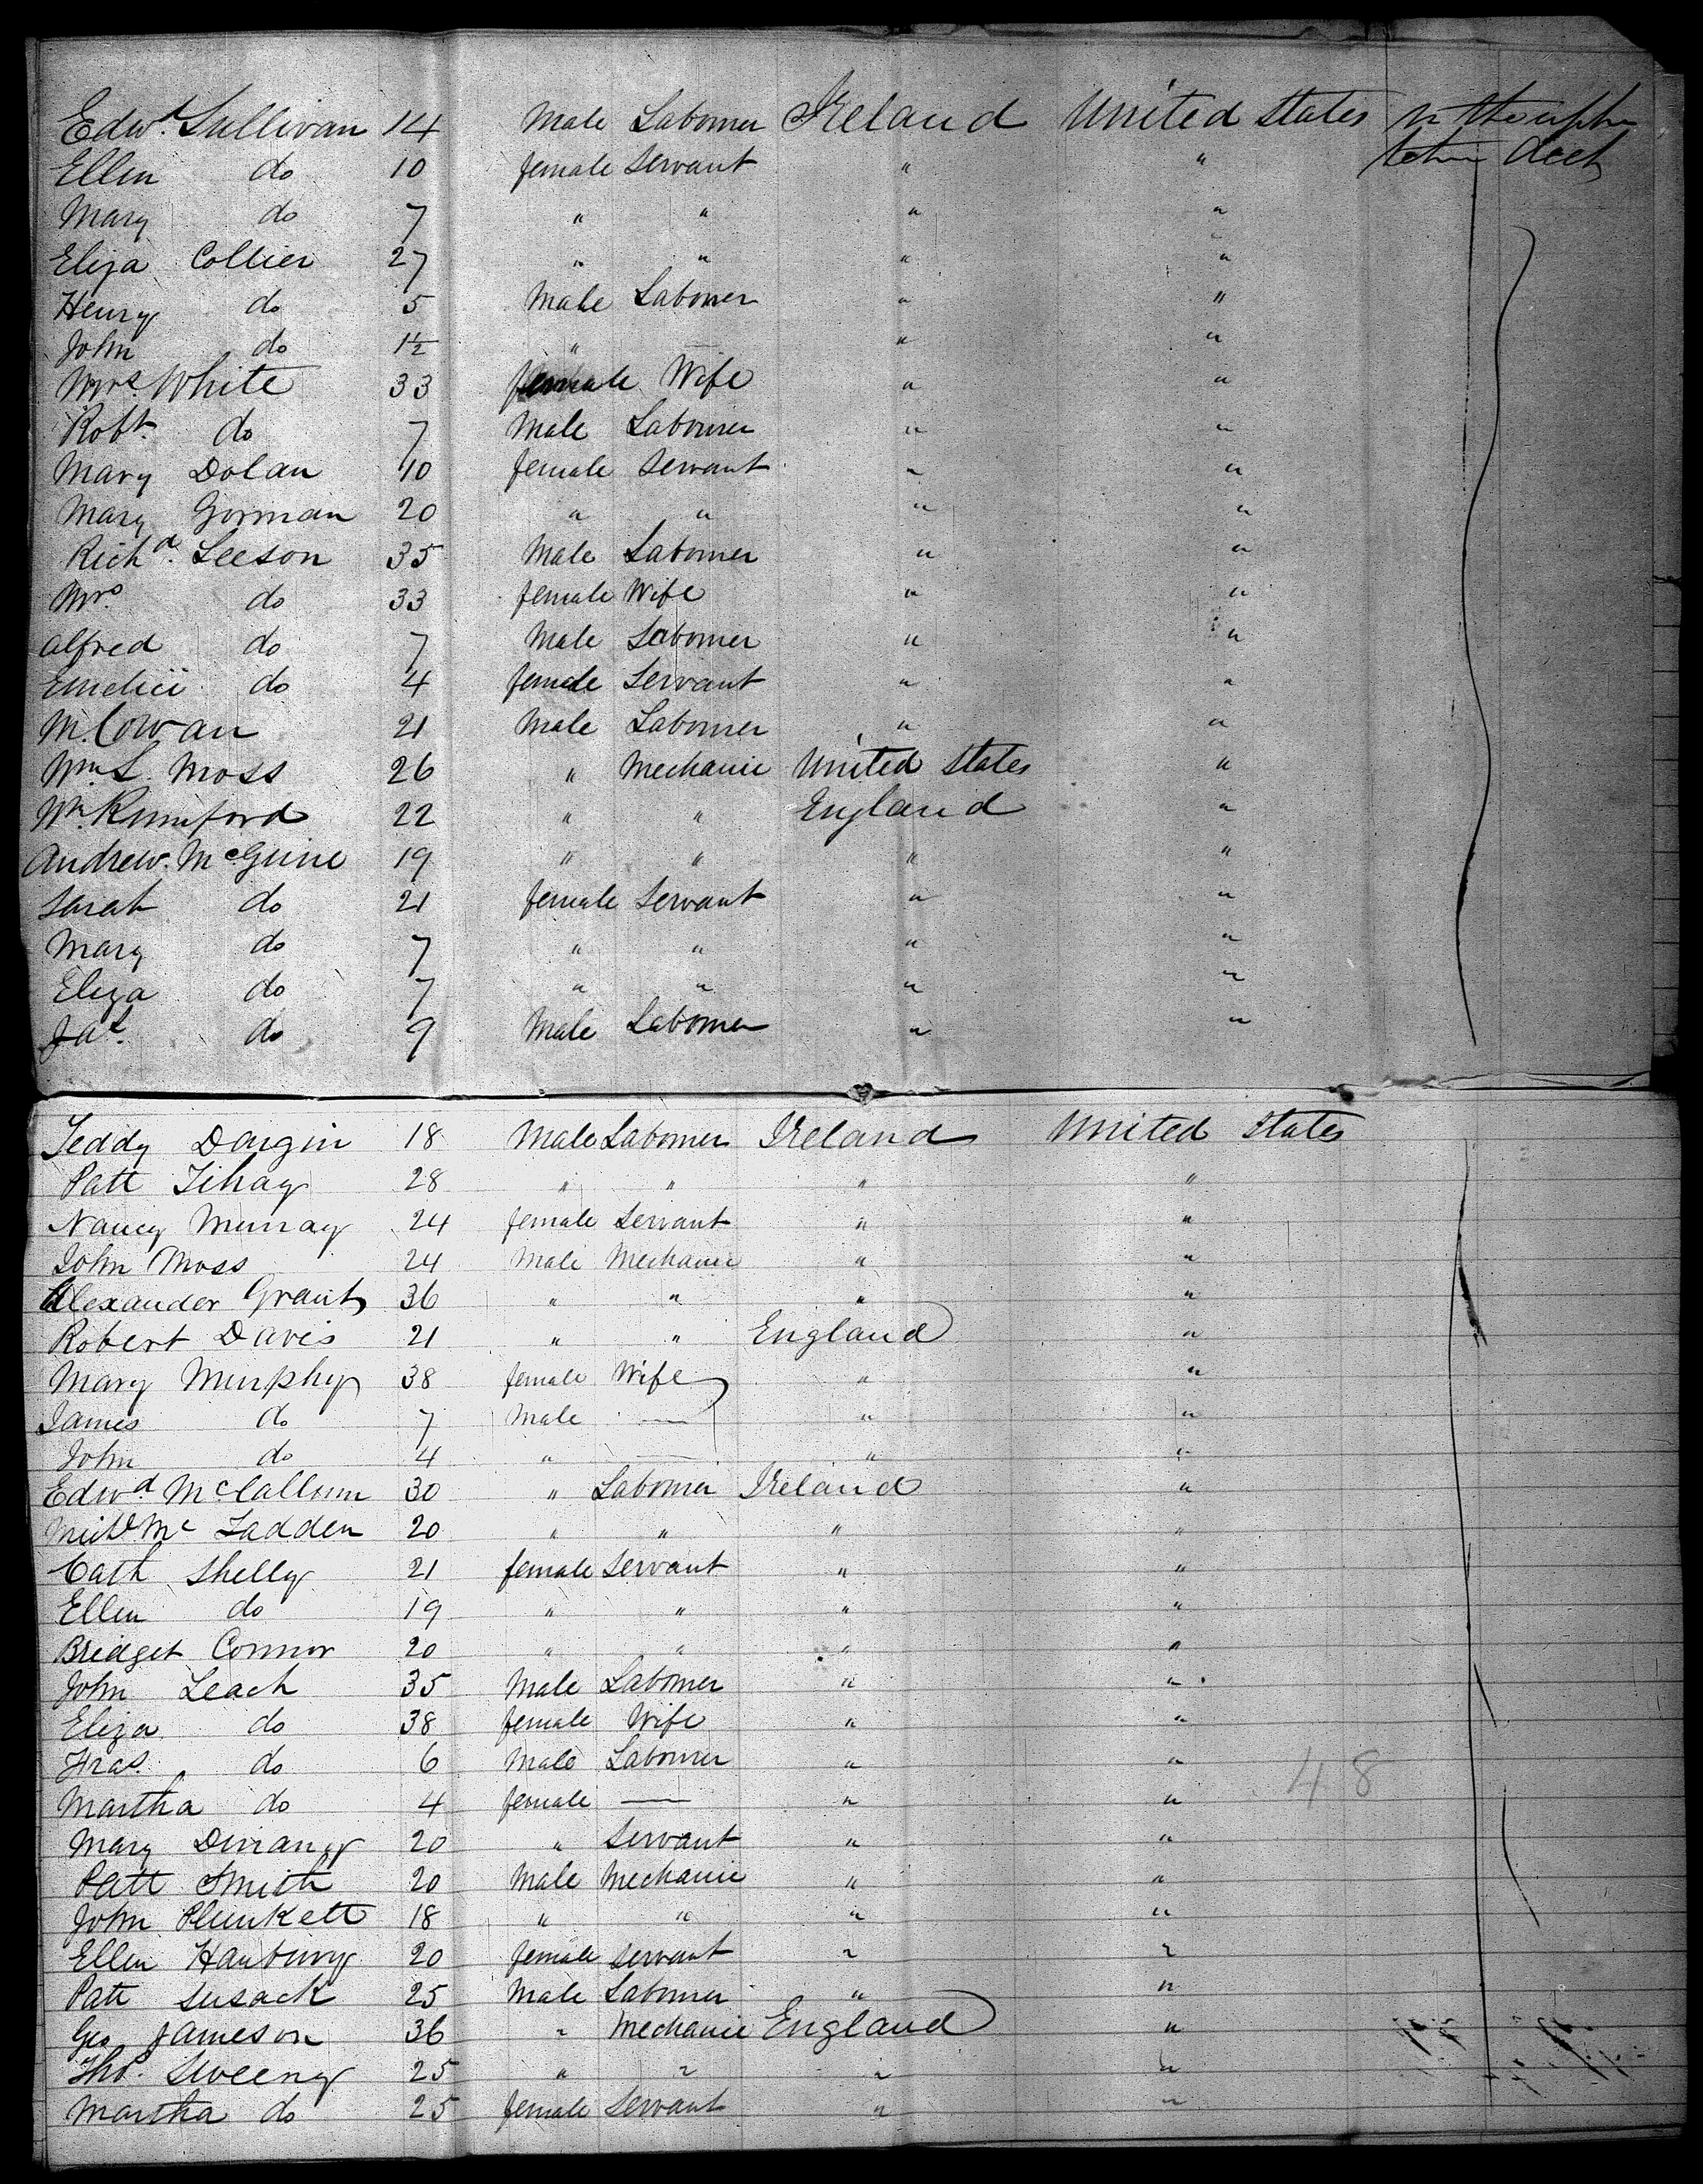 Edwd. Sullivan 14 Male Labourer Ireland United States in the upper
Ellen do 10 female Servant " " between deck
Mary do 7 " " " "
Eliza Collier 27 " " " "
Henry do 5 Male Labourer " "
John do 1½ " — " "
Mrs. White 33 female Wife " "
Robt. do 7 Male Labourer " "
Mary Dolan 10 female Servant " "
Mary Gorman 20 " " " "
Richd. Leeson 35 Male Labourer " "
Mrs do 33 female Wife " "
Alfred do 7 Male Labourer " "
do 4 female Servant " "
M. Cowan 21 Male Labourer " "
Wm. L. Moss 26 " Mechanic United States "
Wm. Rumford 22 " " England "
Andrew. McGuire 19 " " " "
Sarah do 21 female Servant " "
Mary do 7 " " " "
Eliza do 7 " " " "
Jas. do 9 Male Labourer " "
Teddy Dargin 18 Male Labourer Ireland United States
Patt Fihay 28 " " " "
Nancy Murray 24 female Servant " "
John Moss 24 Male Mechanic " "
Alexander Grant 36 " " " "
Robert Davis 21 " " England "
Mary Murphy 38 female Wife " "
James do 7 Male — " "
John do 4 " — " "
Edwd McCallum 30 " Labourer Ireland "
Michl Mc Ladden 20 " " " "
Cath Shelly 21 female Servant " "
Ellen do 19 " " " "
Bridget Connor 20 " " " "
John Leach 35 Male Labourer " "
Eliza do 38 female Wife " "
Fras. do 6 Male Labourer " " 48
Martha do 4 female — " "
Mary 20 " Servant " "
Patt Smith 20 Male Mechanic " "
John Plunkett 18 " " " "
Ellen Hanbury 20 female Servant " "
Patt Susack 25 Male Labourer " "
Geo Jameson 36 " Mechanic England "
Thos. Sweeny 25 " " " "
Martha do 25 female Servant " "